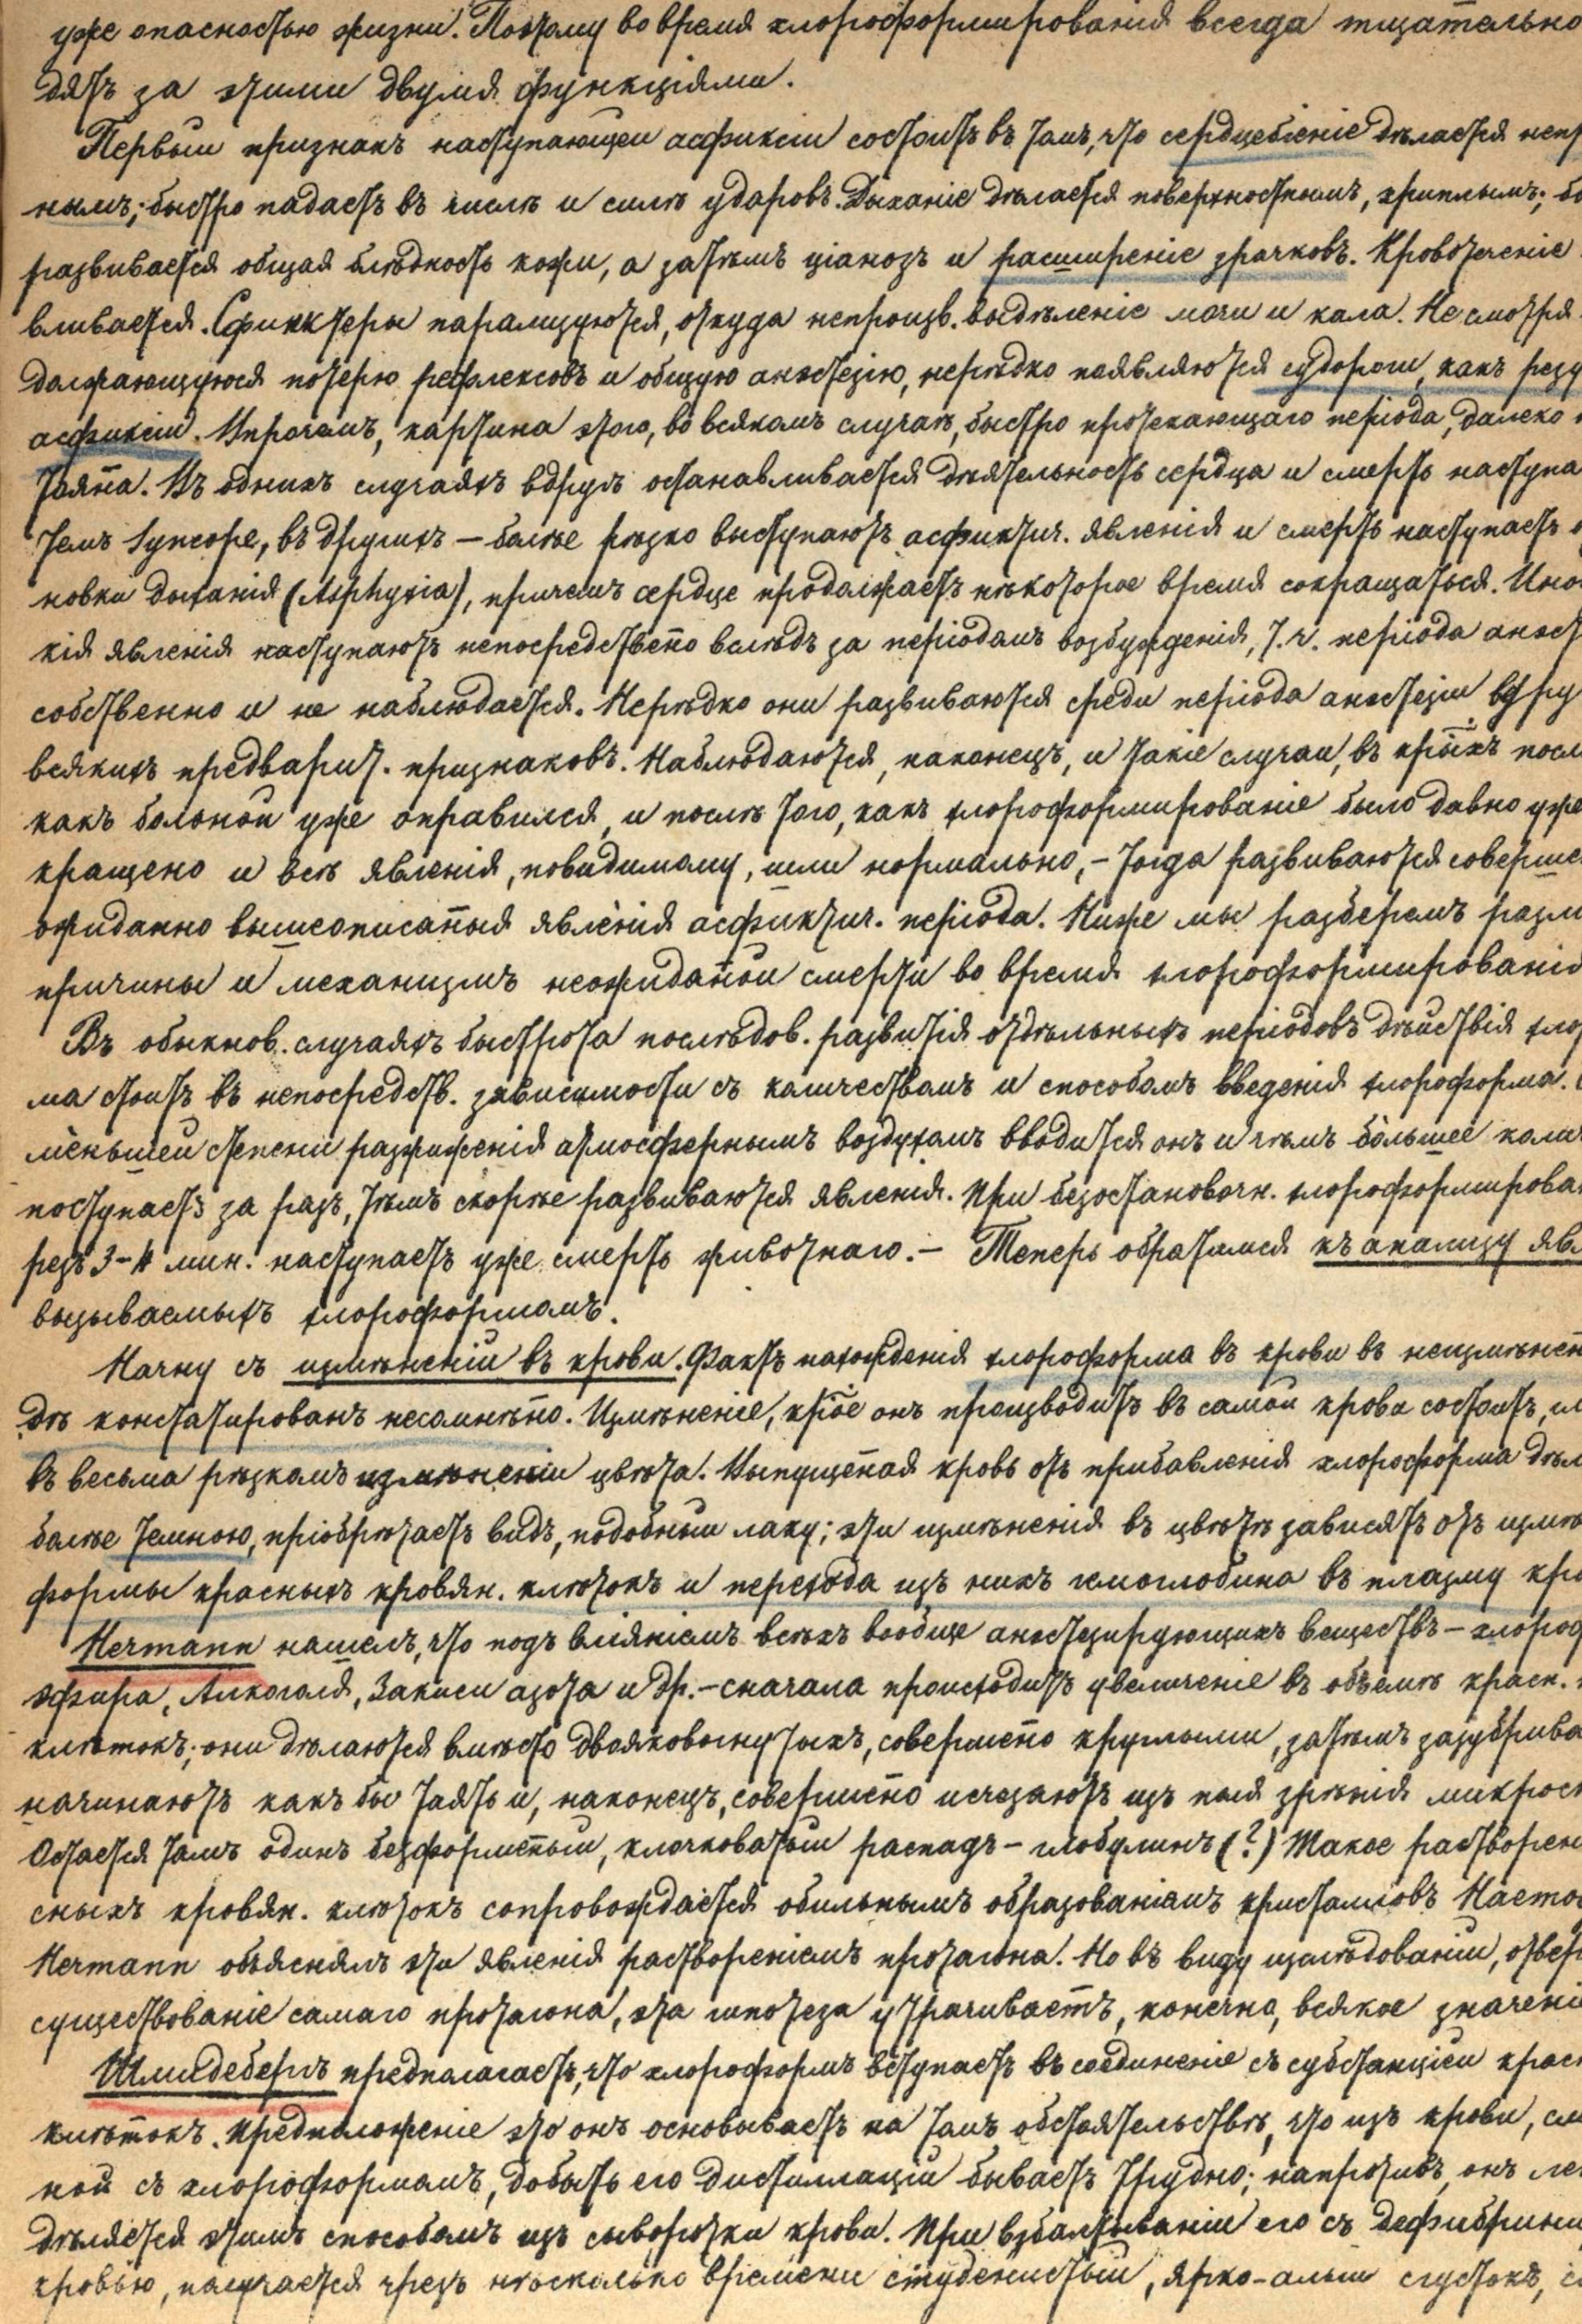 уже опасностью жизни. Поэтому во время хлороформированія всегда тщательно
дятъ за этими двумя функціями.
Первый признакъ наступающей асфиксіи состоитъ въ томъ, что сердцебіеніе дѣлается непр
нымъ; быстро падаетъ въ числѣ и силѣ ударовъ. Дыханіе дѣлается поверхностнымъ, хриплымъ; бы
развивается общая блѣдность кожи, а затѣмъ ціанозъ и расширеніе зрачковъ. Кровотеченіе
вливается. Сфинктеры парализуются, откуда непроизв. выдѣленіе мочи и кала. Не смотря
должающуюся потерю рефлексовъ и общую анэстезію, нерѣдко появляются судороги, какъ резу
асфиксіи. Впрочемъ, картина этого, во всякомъ случаѣ, быстро протекающаго періода, далеко
тоян̄а. Въ однихъ случаяхъ вдругъ останавливается дѣятельность сердца и смерть наступа
темъ Syncope, въ другихъ — болѣе рѣзко выступаютъ асфиктич. явленія и смерть наступаетъ о
новки дыханія (Asphyxia), причемъ сердце продолжаетъ нѣкоторое время сокращаться. Ино
кія явленія наступаютъ непосредствен̄о вслѣдъ за періодомъ возбужденія, т. ч. періода анэст
собственно и не наблюдается. Нерѣдко они развиваются среди періода анэстезіи вдру
всякихъ предварит. признаковъ. Наблюдаются, наконецъ, и такіе случаи, въ кр̄ыхъ посл
какъ больной уже оправился, и послѣ того, какъ хлороформированіе было давно уже
кращено и всѣ явленія, повидимому, шли нормально, – тогда развиваются соверше
ожиданно вышеописан̄ыя явленія асфиктич. періода. Ниже мы разберемъ разли
причины и механизмъ неожидан̄ой смерти во время хлороформированія
Въ обыкнов. случаяхъ быстрота послѣдов. развитія отдѣльныхъ періодовъ дѣйствія хлор
ма стоитъ въ непосредств. зависимости съ количествомъ и способомъ введенія хлороформа.
меньшей степени разжиженія атмосфернымъ воздухомъ вводится онъ и чѣмъ большее колич
поступаетъ за разъ, тѣмъ скорѣе развиваются явленія. При безостановочн. хлороформирова
резъ 3–4 мин. наступаетъ уже смерть животнаго. – Теперь обратимся къ анализу явл
вызываемыхъ хлороформомъ.
Начну съ измѣненій въ крови. Фактъ нахожденія хлороформа въ крови въ неизмѣнен̄
дѣ констатированъ несомнѣн̄о. Измѣненіе, кр̄ое онъ производитъ въ самой крови состоитъ,
въ весьма рѣзкомъ измѣненіи цвѣта. Выпущен̄ая кровь отъ прибавленія хлороформа дѣл
болѣе темною, пріобрѣтаетъ видъ, подобный лаку; эти измѣненія въ цвѣтѣ зависятъ отъ измѣ
формы красныхъ кровян. клѣтокъ и перехода изъ нихъ гемоглобина въ плазму кро
Hermann нашелъ, что подъ вліяніемъ всѣхъ вообще анэстезирующихъ веществъ – хлороф
эфира, Алкоголя, Закиси азота и др. – сначала происходитъ увеличеніе въ объемѣ красн.
клѣтокъ; они дѣлаются вмѣсто двояковогнутыхъ, совершен̄о круглыми, затѣмъ зазубрива
начинаютъ какъ бы таять и, наконецъ, совершен̄о исчезаютъ изъ поля зрѣнія микроск
Остается тамъ одинъ безформен̄ый, клочковатый распадъ – глобулинъ (?) Такое растворен
сныхъ кровян. клѣтокъ сопровождается обильнымъ образованіемъ кристалловъ Haemo
Hermann объяснялъ эти явленія раствореніемъ протагона. Но въ виду изслѣдованій, отвер
существованіе самаго протагона, эта гипотеза утрачиваетъ, конечно, всякое значені
Шмидебергъ предполагаетъ, что хлороформъ вступаетъ въ соединеніе съ субстанціей крас
клѣтокъ. Предположеніе это онъ основываетъ на томъ обстоятельствѣ, что изъ крови, см
ной съ хлороформомъ, добыть его дистилляціи бываетъ трудно; напротивъ, онъ ле
дѣляется этимъ способомъ изъ сыворотки крови. При взбалтываніи его съ дефибрини
кровью, получается чрезъ нѣсколько времени студенистый, ярко-алый сгустокъ,